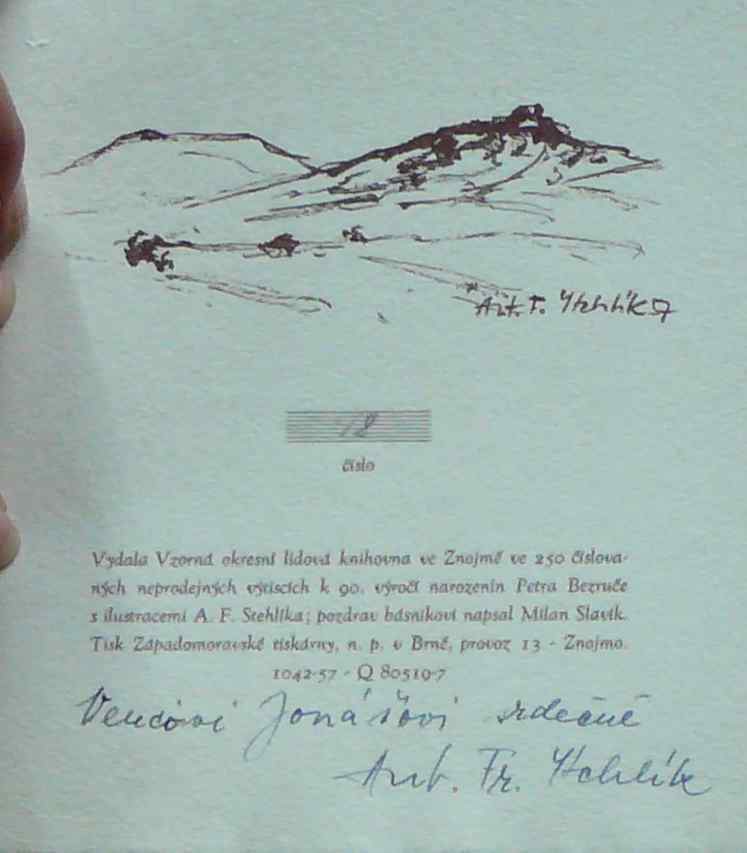 Ant. F. Stehlík 57
18
číslo
Vydala Vzorná okresní lidová knihovna ve Znojmě ve 250 číslova-
ných neprodejných výtiscích k 90. výročí narozenin Petra Bezruče
s ilustracemi A. F. Stehlíka; pozdrav básníkovi napsal Milan Slavík.
Tisk Západomoravské tiskárny, n. p. v Brně, provoz 13 - Znojmo.
1042-57 - Q 80519-7
Vencovi Jonášovi srdečně
Ant. Fr. Stehlík